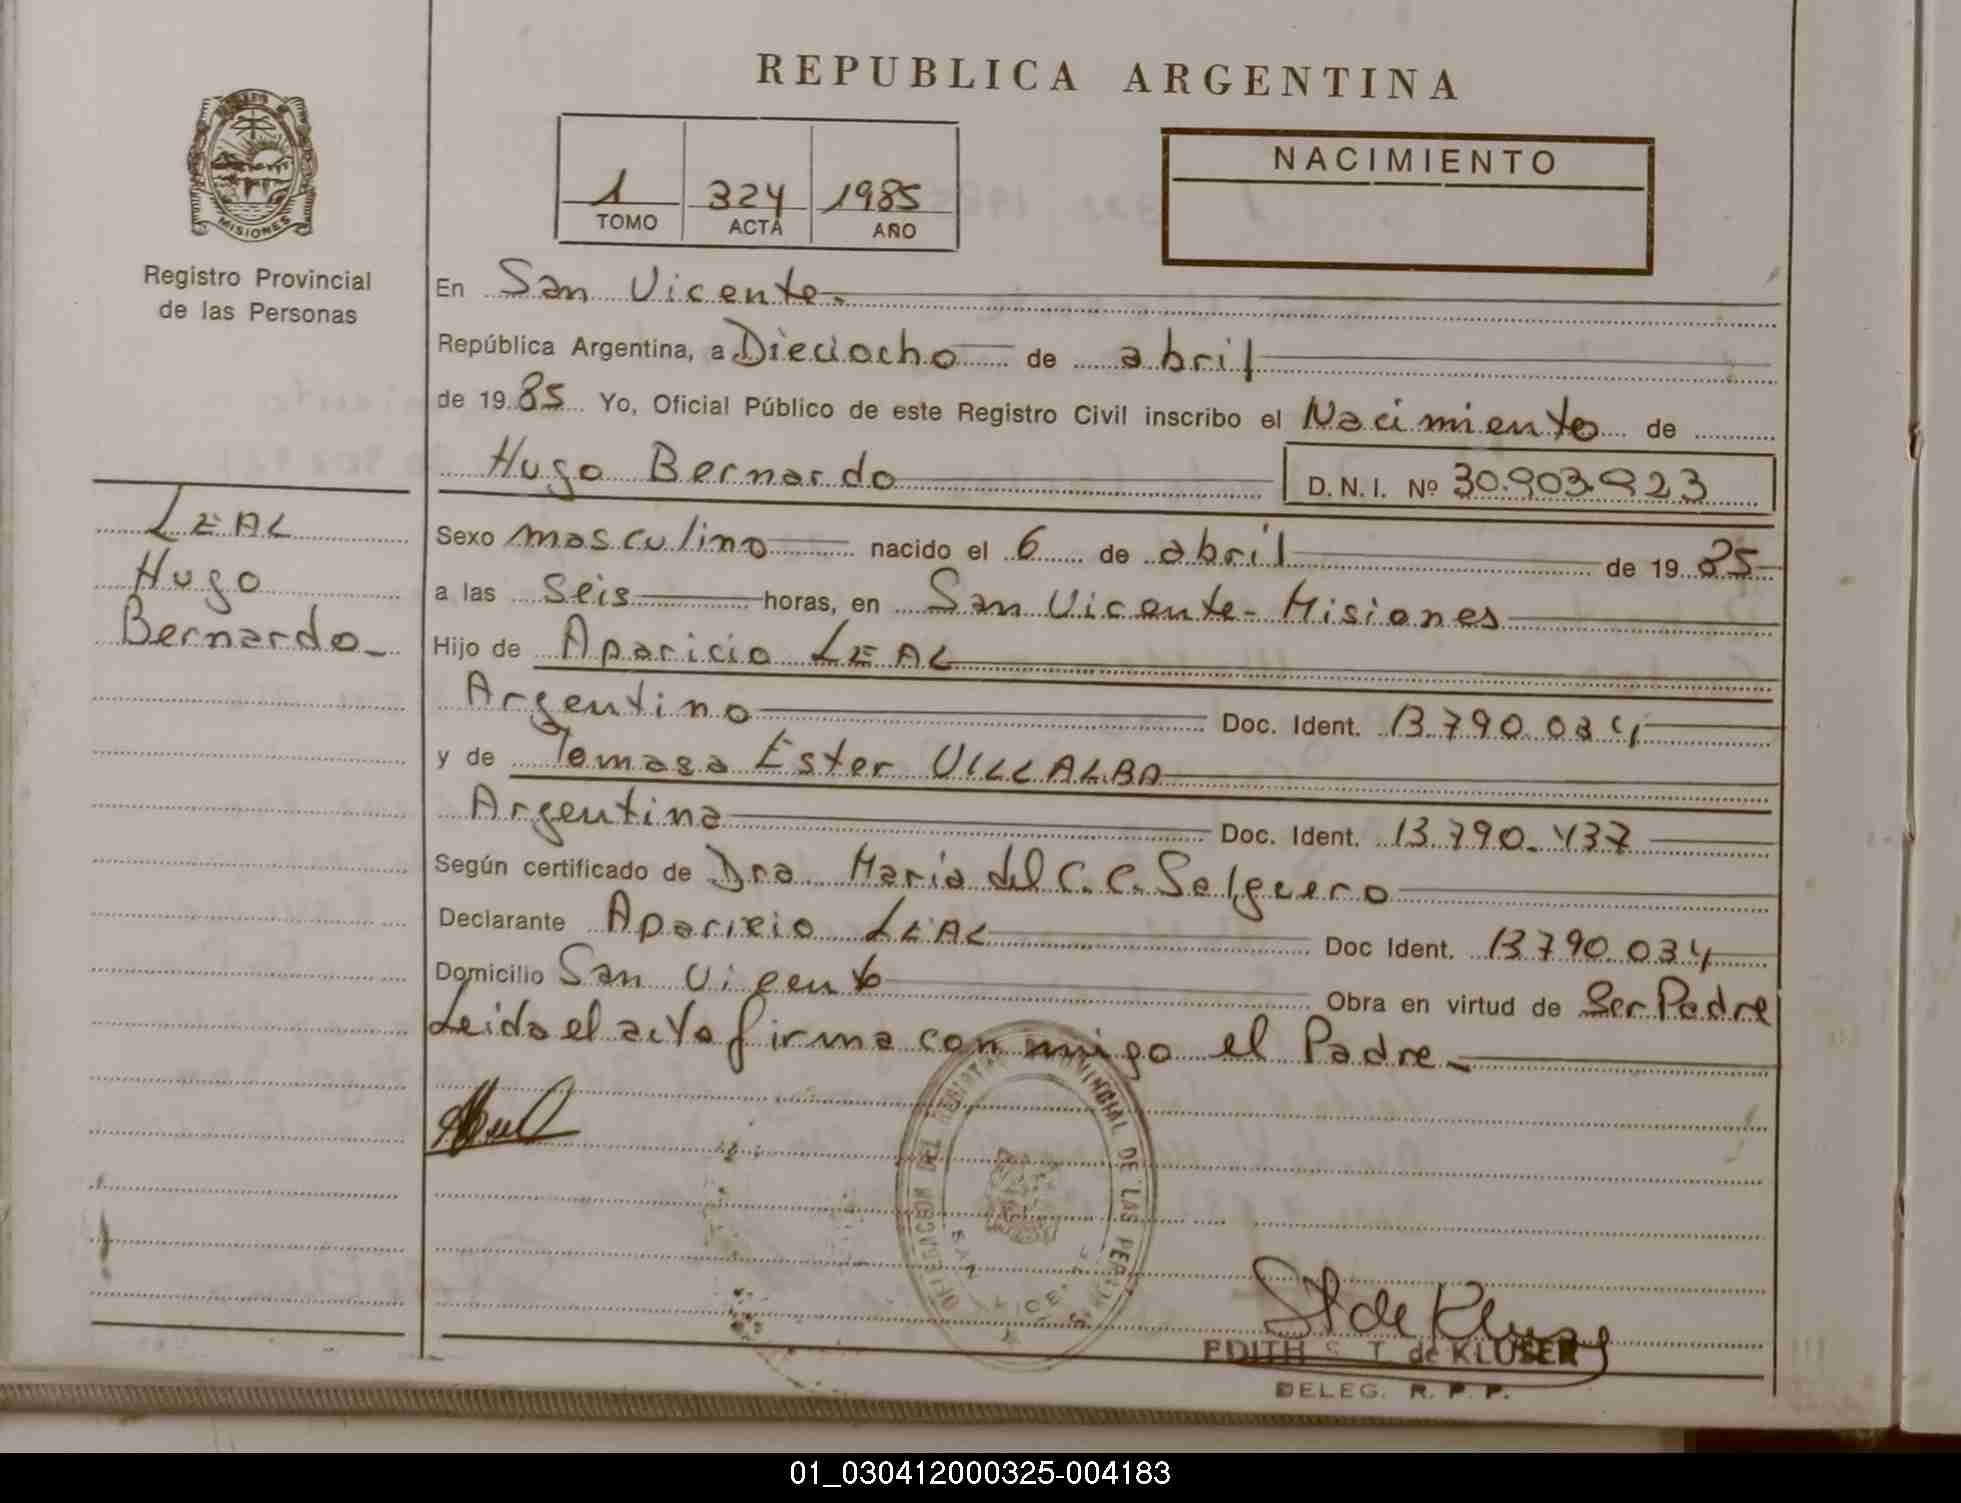 REPUBLICA ARGENTINA
MISIONES
Registro Provincial
de las Personas
1 324 1985
TOMO ACTA AÑO
NACIMIENTO
En San Vicente.
República Argentina, a Dieciocho de abril
de 1985 Yo, Oficial Público de este Registro Civil inscribo el Nacimiento de
Hugo Bernardo D.N.I. Nº 30.903.923
LEAL
Hugo
Bernardo
Sexo masculino nacido el 6 de abril de 1985
a las Seis horas, en San Vicente - Misiones
Hijo de Aparicio LEAL
Argentino Doc. Ident. 13.790.034
y de Tomasa Ester VILLALBA
Argentina Doc. Ident. 13.790.437
Según certificado de Dra. Maria del C. C. Salguero
Declarante Aparicio LEAL Doc Ident. 13790.034
Domicilio San Vicente Obra en virtud de Ser Padre
Leida el acta firma con migo el Padre
DELEGACION DEL REGISTRO PROVINCIAL DE LAS PERSONAS
SAN VICENTE
EDITH S. T. de KLUSER
DELEG. R. P. P.
01_030412000325-004183